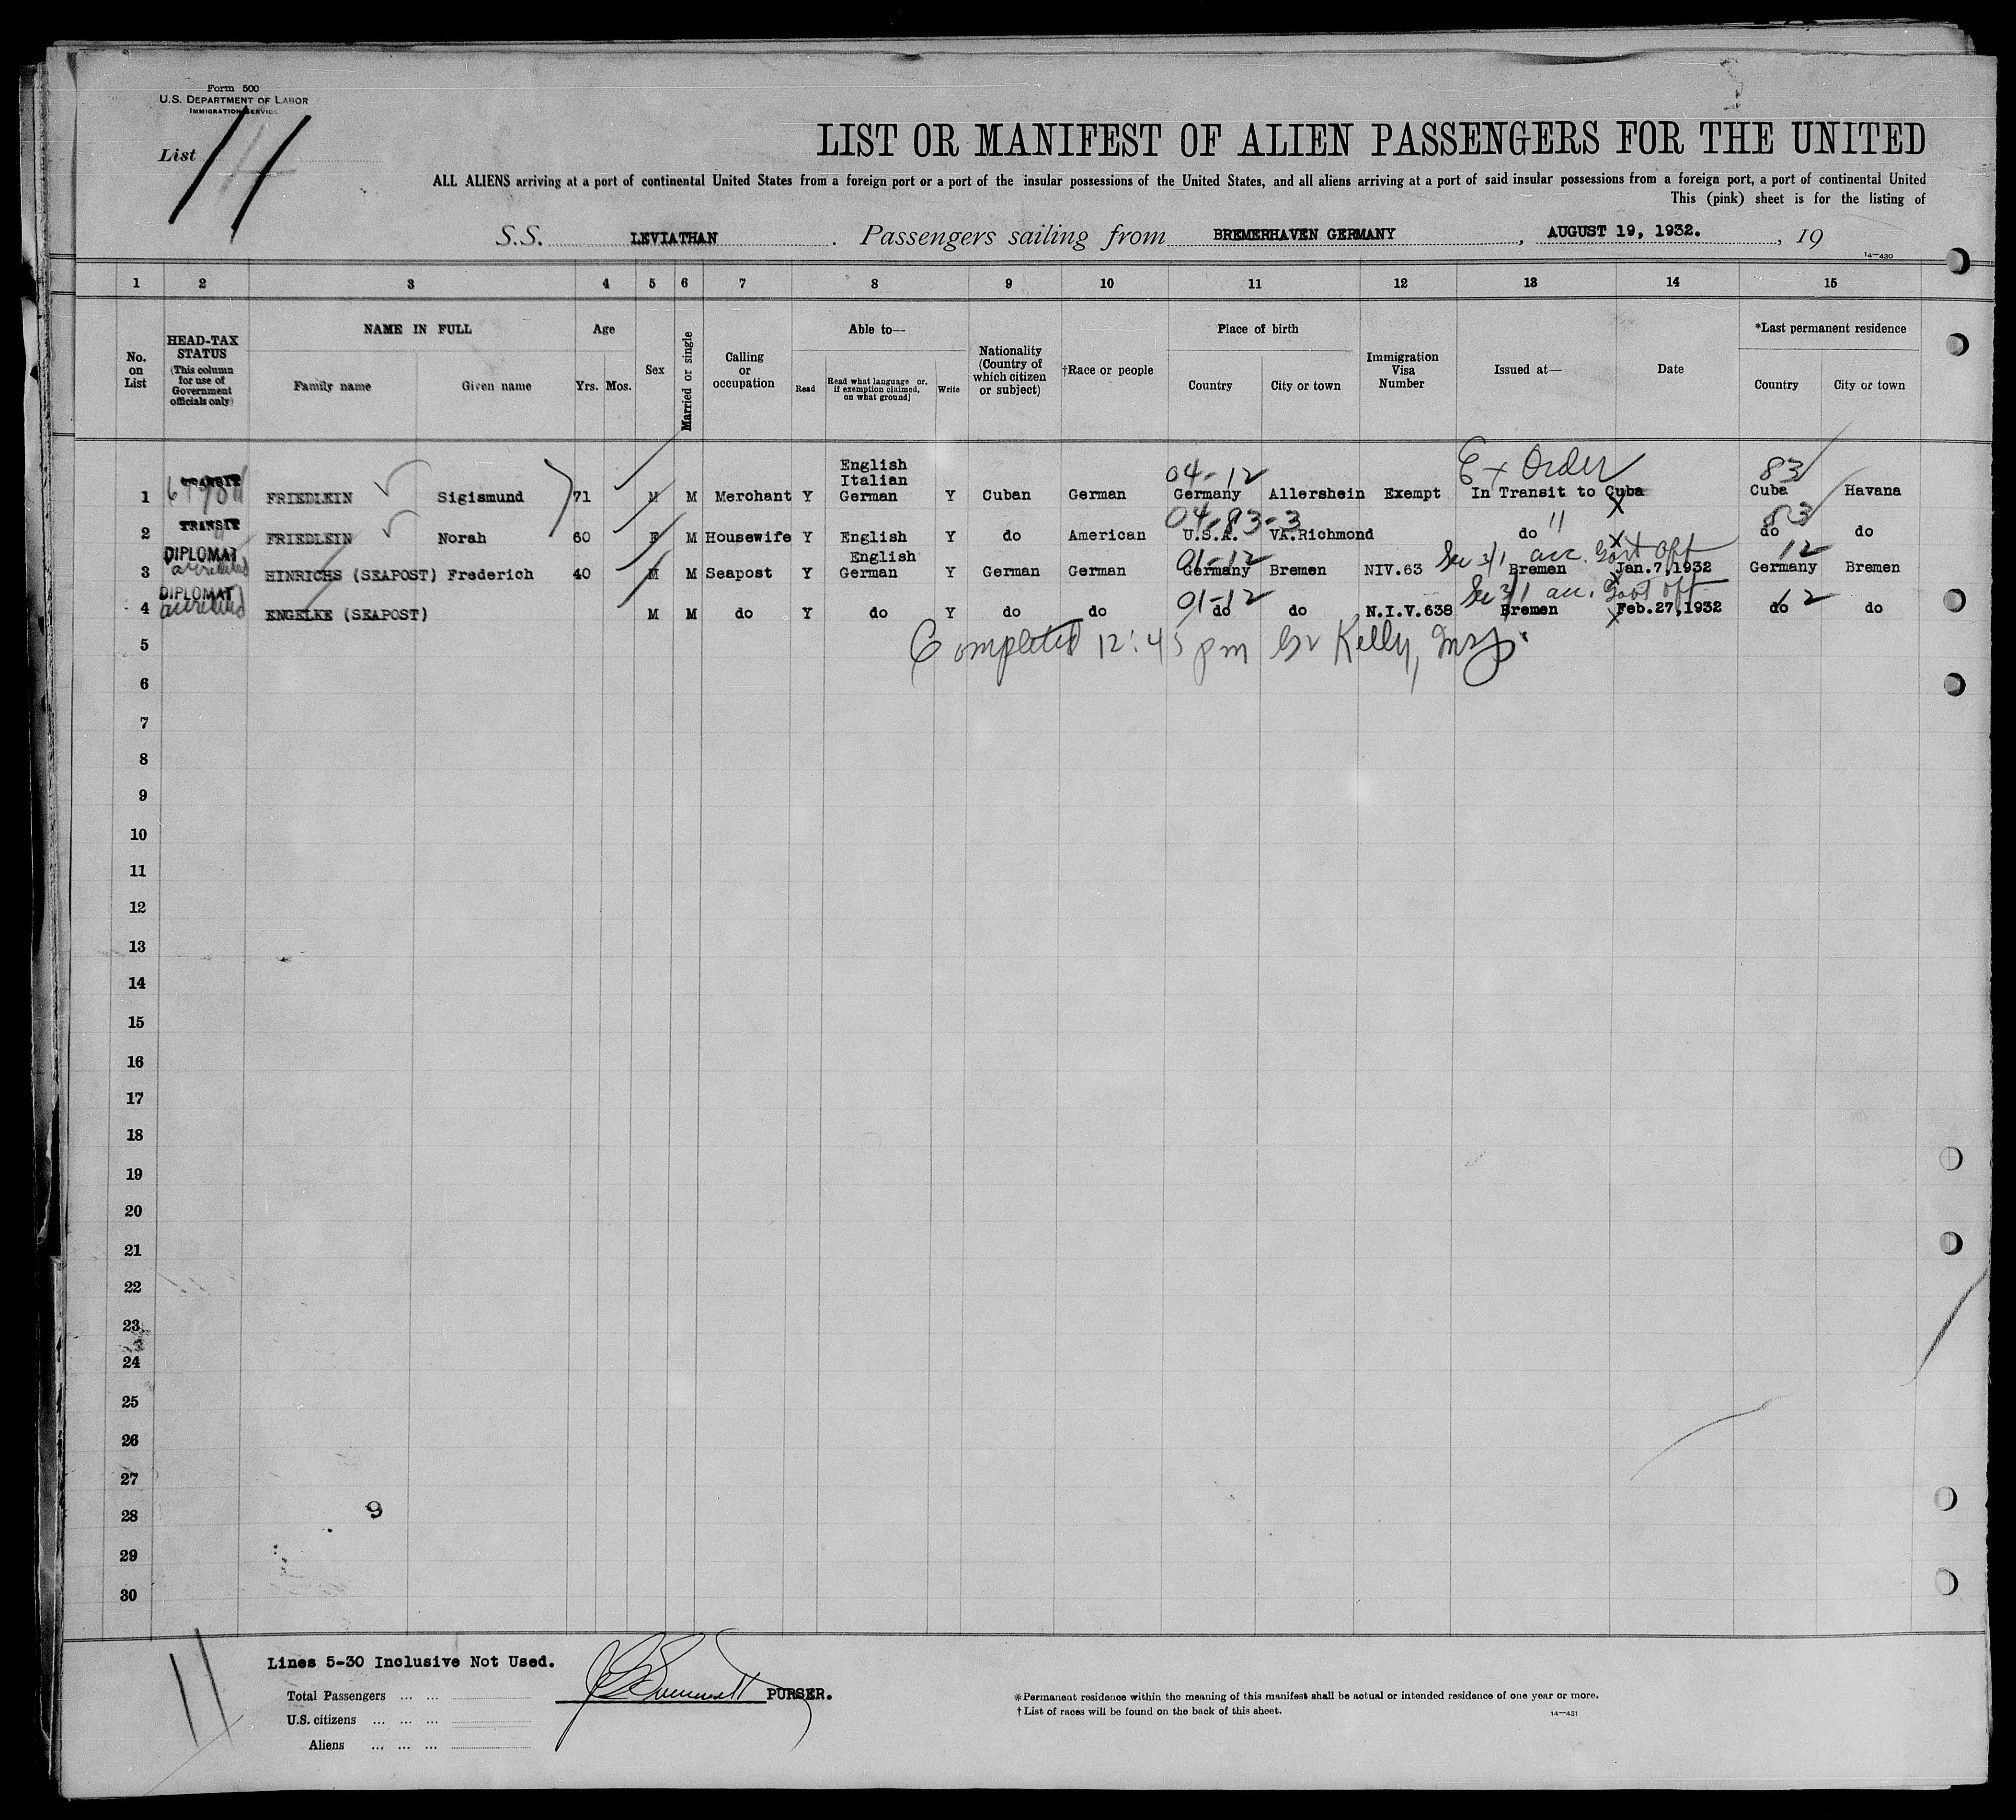 Form 500
U.S. DEPARTMENT OF LABOR
IMMIGRATION SERVICE
List 11
LIST OR MANIFEST OF ALIEN PASSENGERS FOR THE UNITED
ALL ALIENS arriving at a port of continental United States from a foreign port or a port of the insular possessions of the United States, and all aliens arriving at a port of said insular possessions from a foreign port, a port of continental United
This (pink) sheet is for the listing of
S.S. LEVIATHAN. Passengers sailing from BREMERHAVEN GERMANY, AUGUST 19, 1932., 19
14—430
1 2 3 4 5 6 7 8 9 10 11 12 13 14 15
No. on List
HEAD-TAX STATUS (This column for use of Government officials only)
NAME IN FULL
Family name Given name
Age
Yrs. Mos.
Sex
Married or single
Calling or occupation
Able to—
Read Read what language or, if exemption claimed, on what ground] Write
Nationality (Country of which citizen or subject)
†Race or people
Place of birth
Country City or town
Immigration Visa Number
Issued at—
Date
*Last permanent residence
Country City or town
English
Italian
04-12 Ex Order 83
TRANSIT
1 FRIEDLEIN Sigismund 71 M M Merchant Y German Y Cuban German Germany Allershein Exempt In Transit to Cuba X Cuba Havana
04-83-3 83
TRANSIT
2 FRIEDLEIN Norah 60 F M Housewife Y English Y do American U.S.A. VA.Richmond do " X do do
DIPLOMAT accredited English 01-12 Sec 3/1 acc. Govt Off 12
3 HINRICHS (SEAPOST) Frederich 40 M M Seapost Y German Y German German Germany Bremen NIV.63 Bremen Jan.7,1932 Germany Bremen
DIPLOMAT accredited 01-12 Sec 3/1 acc. Govt Off 12
4 ENGELKE (SEAPOST) M M do Y do Y do do do do N.I.V.638 Bremen X Feb.27,1932 do do
5 Completed 12:45 pm Kelly, Insp.
6
7
8
9
10
11
12
13
14
15
16
17
18
19
20
21
22
23
24
25
26
27
28 9
29
30
11
Lines 5-30 Inclusive Not Used.
Total Passengers ... ... PURSER.
U.S. citizens ... ... ...
Aliens ... ... ...
*Permanent residence within the meaning of this manifest shall be actual or intended residence of one year or more.
†List of races will be found on the back of this sheet. 14—431